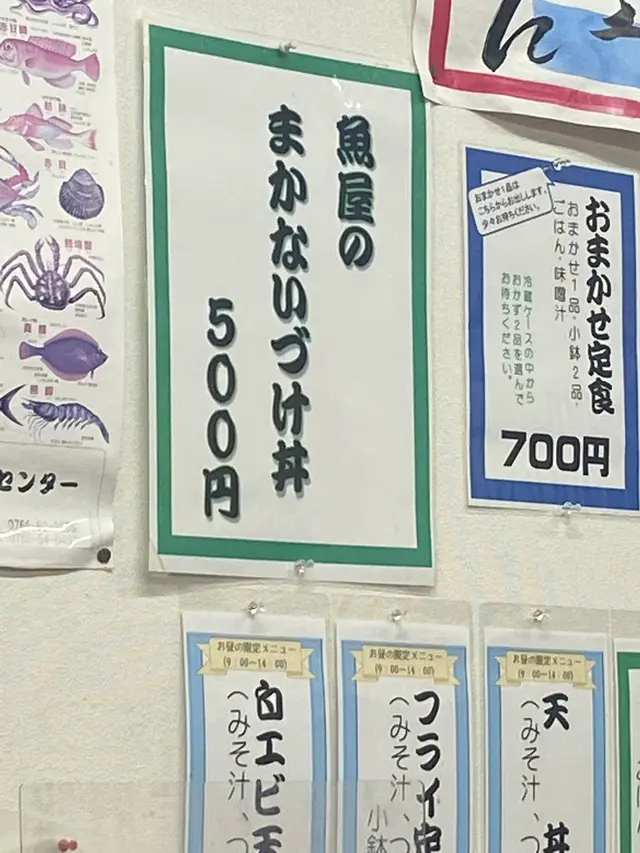 魚屋の
まかないづけ丼
500円
おまかせ1品は
こちらからお出しします。
少々お待ちください。
おまかせ定食
おまかせ1品・小鉢2品・
ごはん・味噌汁
冷蔵ケースの中から
おかず2品を選んで
お待ちください。
700円
ん
センター
お昼の限定メニュー
(9:00~14:00)
白エビ天
(みそ汁、つ
お昼の限定メニュー
(9:00~14:00)
フライ定
(みそ汁、つ
小鉢
お昼の限定メニュー
(9:00~14:00)
天丼
(みそ汁、つ